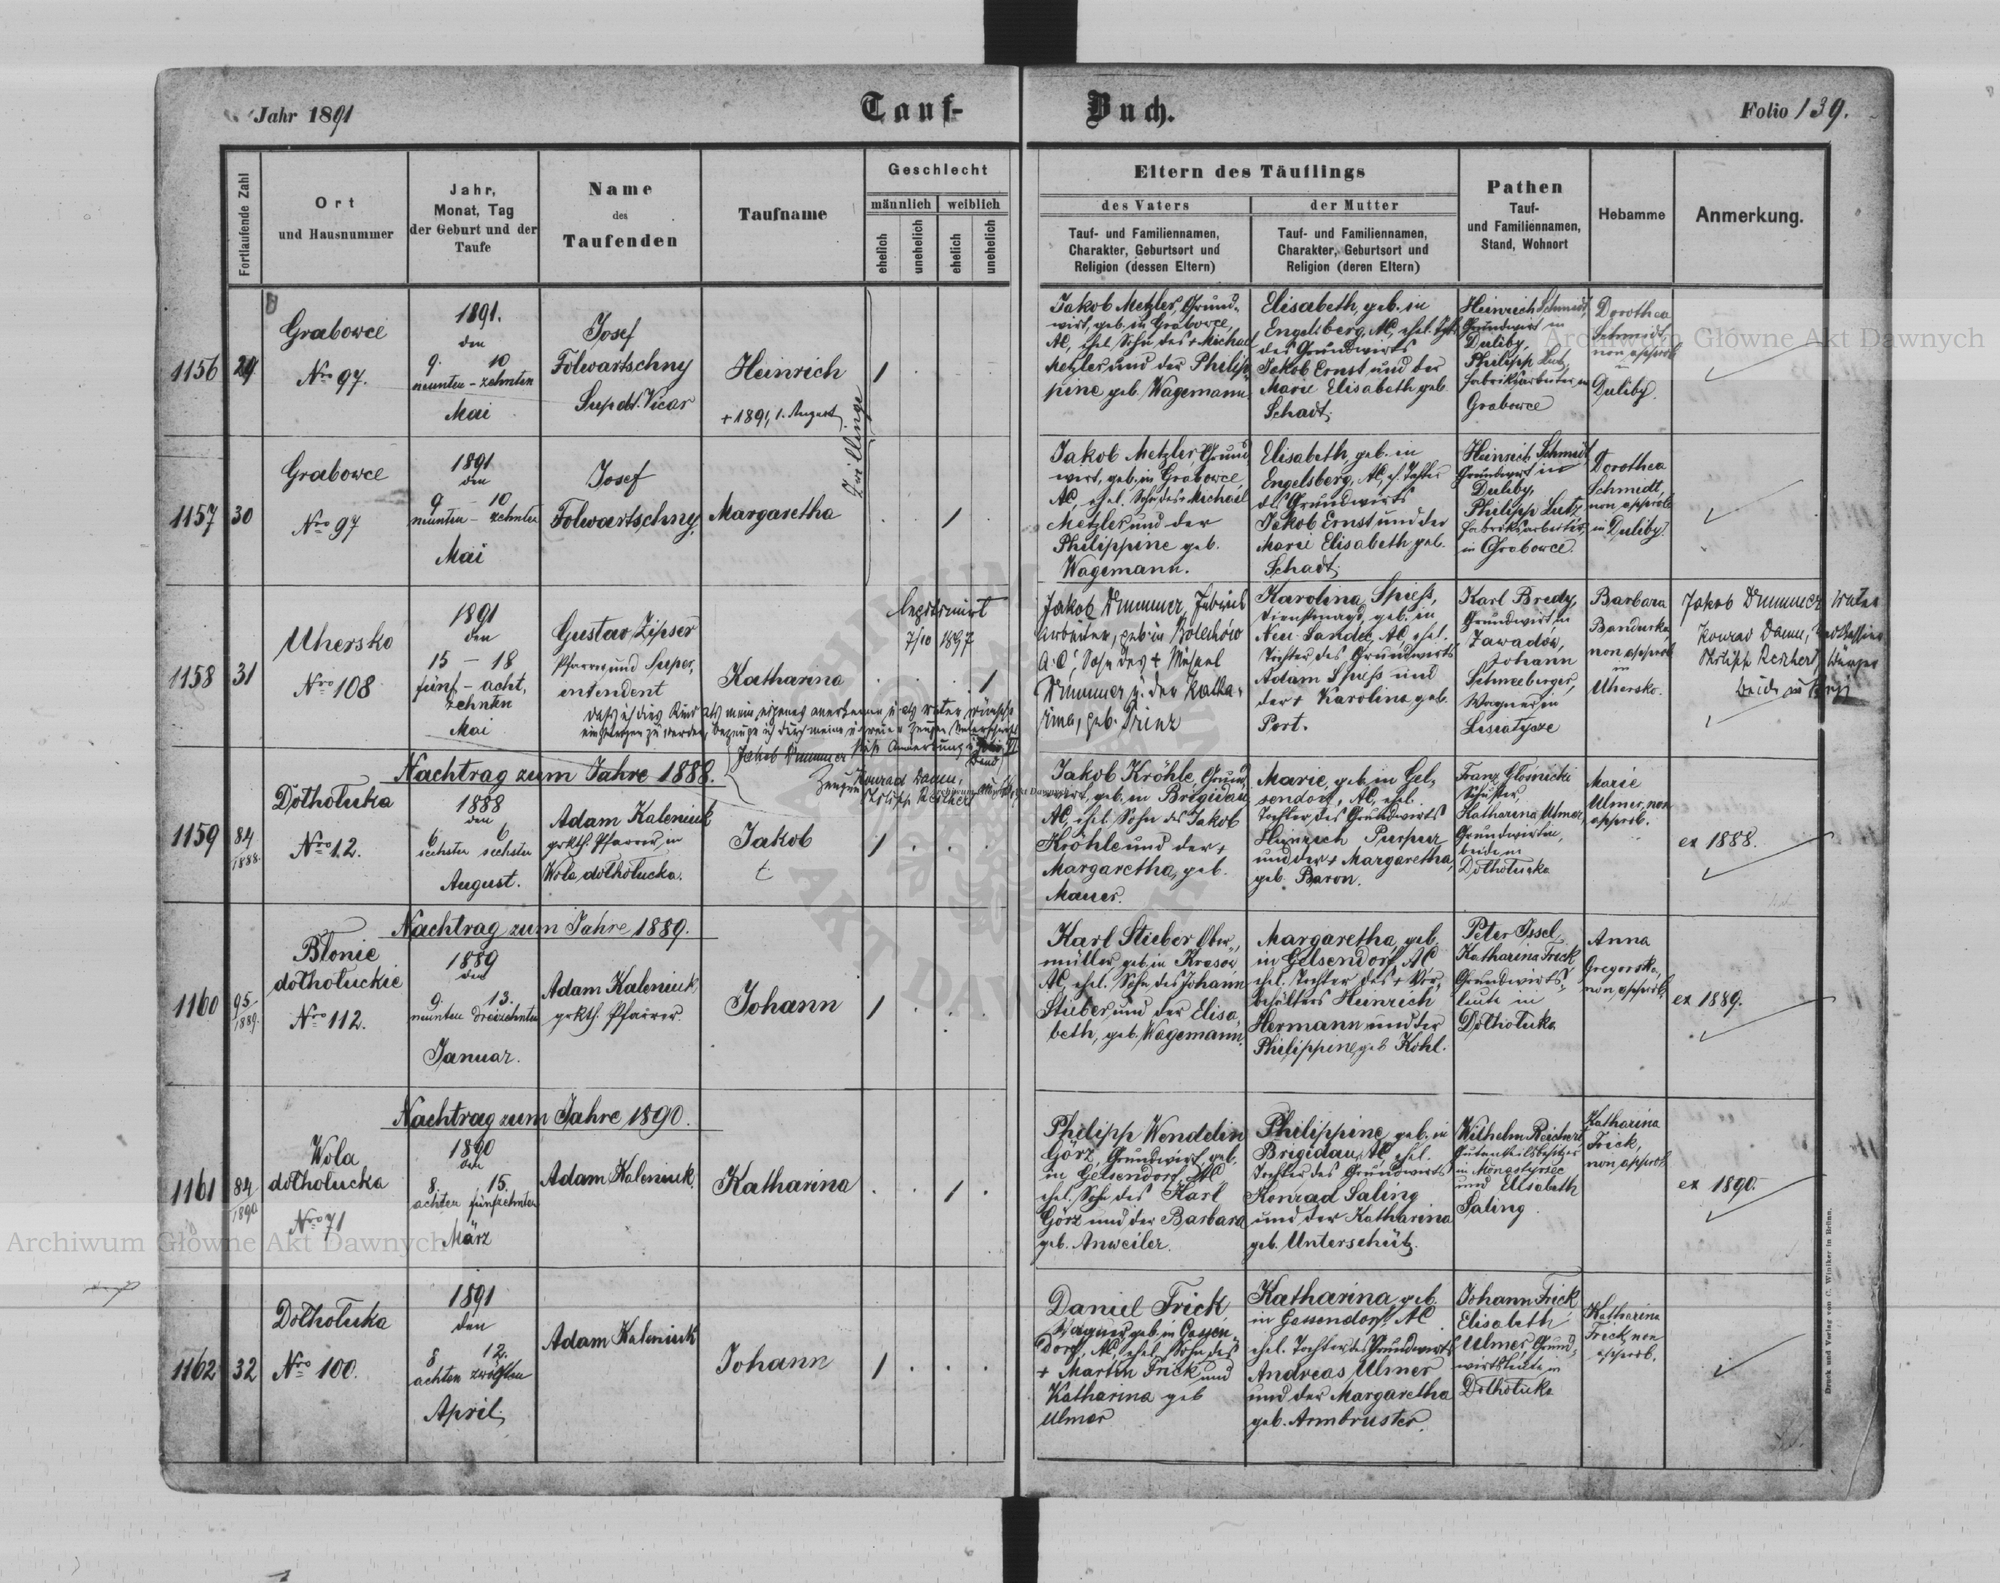 Jahr 1891
Tauf-
Buch.
Folio 139.
Fortlaufende Zahl
Ort
und Hausnummer
Jahr,
Monat, Tag
der Geburt und der
Taufe
Name
des
Taufenden
Taufname
Geschlecht
männlich
weiblich
ehelich
unehelich
ehelich
unehelich
Eltern des Täuflings
des Vaters
der Mutter
Tauf- und Familiennamen,
Charakter, Geburtsort und
Religion (dessen Eltern)
Tauf- und Familiennamen,
Charakter, Geburtsort und
Religion (deren Eltern)
Pathen
Tauf-
und Familiennamen,
Stand, Wohnort
Hebamme
Anmerkung.
1156
29
Grabowce
Nro 97.
1891.
den
9. 10
neunten - zehnten
Mai
Josef
Folwartschny
Supdt. Vicar
Heinrich
+ 1891, 1. August
1
Zwillinge
Jakob Metzler, Grund-
wirt, geb. in Grabowce,
AC, ehel. Sohn des + Michael
Metzler und der Philip-
pine, geb. Wagemann
Elisabeth, geb. in
Engelsberg, AC, ehel.
des Grundwirts
Jakob Ernst und der
Marie Elisabeth, geb.
Schadt.
Heinrich Schmidt,
Grundwirt in
Duliby,
Philipp Lutz,
Fabriksarbeiter in
Grabowce
Dorothea
Schmidt
non approb
in
Duliby.
1157
30
Grabowce
Nro 97
1891
den
9 - 10
neunten - zehnten
Mai
Josef
Folwartschny
Margaretha
1
Jakob Metzler, Grund
wirt, geb. in Grabowce,
AC, ehel. Sohn des Michael
Metzler und der
Philippine geb.
Wagemann.
Elisabeth, geb. in
Engelsberg, AC, e. Tochter
des Grundwirts
Jakob Ernst und der
Marie Elisabeth geb.
Schadt.
Heinrich Schmidt
Grundwirt in
Duliby,
Philipp Lutz
Fabriksarbeiter,
in Grabowce.
Dorothea
Schmidt,
non approb
in Duliby.
1158
31
Uhersko
Nro 108
1891
den
15 - 18
fünf - acht,
zehnten
Mai
Gustav Zipser
Pfarrer und Super,
intendent
Katharina
1
legitimirt
7/10 1897
Daß ich dies Kind als mein eigenes anerkenne u. als Vater
eingetragen zu werden, bezeuge ich durch meine u. zweier Zeugen Unterschrift
Jakob Drummer
Zeugen Konrad Daum,
Philipp Reichert
Jakob Drummer, Fabriks
arbeiter, geb. in Bolechów
A.C., Sohn des +
Drummer u. der Katha-
rina, geb. Prinz
Karolina Spieß,
Dienstmagd, geb. in
Neu Sandec, AC, ehel.
Tochter des Grundwirts
Adam Spieß und
der + Karolina geb.
Port.
Karl Bredy,
Grundwirt in
Zawadów,
Johann
Schneeberger,
Wagner in
Lisiatycze
Barbara
Bandurka,
non approb
in
Uhersko.
Jakob Drummer, Vater
Konrad Daum,
Philipp Reichert,
beide in Stryj
Nachtrag zum Jahre 1888.
1159
84
1888.
Dołhołuka
Nro 12.
1888
den
6 6
sechsten sechsten
August.
Adam Kaleniuk
grkth. Pfarrer in
Wola dołhołucka.
Jakob
1
Jakob Kröhle, Grund
wirt, geb. in Brigidau,
AC, ehel. Sohn des Jakob
Kröhle und der +
Margaretha, geb.
Mauer.
Marie, geb. in Gel,
sendorf, AC, ehel.
Tochter des Grundwirts
Heinrich Purpur
und der + Margaretha,
geb. Baron.
Franz Głownicki
Schuster,
Katharina Ulmer,
Grundwirtin,
beide in
Dołhołuka
Marie
Ulmer, non
approb.
ex 1888.
Nachtrag zum Jahre 1889.
1160
95
1889.
Błonie
dołhołuckie
Nro 112.
1889
den
9. 13.
neunten dreizehnten
Januar.
Adam Kaleniuk
grkth. Pfarrer
Johann
1
Karl Stieber Ober,
müller, geb. in
AC, ehel. Sohn des Johann
Stieber und der Elisa,
beth, geb. Wagemann.
Margaretha, geb.
in Gelsendorf, AC
ehel. Tochter des + Vor,
behälters Heinrich
Hermann und der
Philippine, geb. Kohl.
Peter Issel
Katharina Frick
Grundwirts,
leute in
Dołhołuka
Anna
Gregorska,
non approb.
ex 1889.
Nachtrag zum Jahre 1890.
1161
84
1890
Wola
dołhołucka
Nro 71
1890
den
8. 15.
achten fünfzehnten
März
Adam Kaleniuk.
Katharina
1
Philipp Wendelin
Görz, Grundwirt, geb.
in Gelsendorf, AC
ehel. Sohn des Karl
Görz und der Barbara
geb. Anweiler.
Philippine, geb. in
Brigidau, AC, ehel.
Tochter des Grundwirts
Konrad Saling
und der Katharina
geb. Unterschütz.
Wilhelm Reichert
Gutsantheilsbesitzer
in Monastyrzec
und Elisabeth
Saling
Katharina
Frick,
non approb.
ex 1890.
1162
32
Dołhołuka
Nro 100.
1891
den
8. 12.
achten zwölften
April.
Adam Kaleniuk
Johann
1
Daniel Frick
Wagner, geb. in Gassen-
dorf, AC, ehel. Sohn des
+ Martin Frick und
Katharina geb
Ulmer
Katharina geb.
in Gassendorf AC
ehel. Tochter des Grundwirts
Andreas Ulmer
und der Margaretha
geb. Armbruster.
Johann Frick
Elisabeth
Ulmer, Grund,
wirtsleute in
Dołhołuka
Katharina
Frick, non
approb.
Druck und Verlag von C. Winiker in Brünn.
Archiwum Główne Akt Dawnych
Archiwum Główne Akt Dawnych